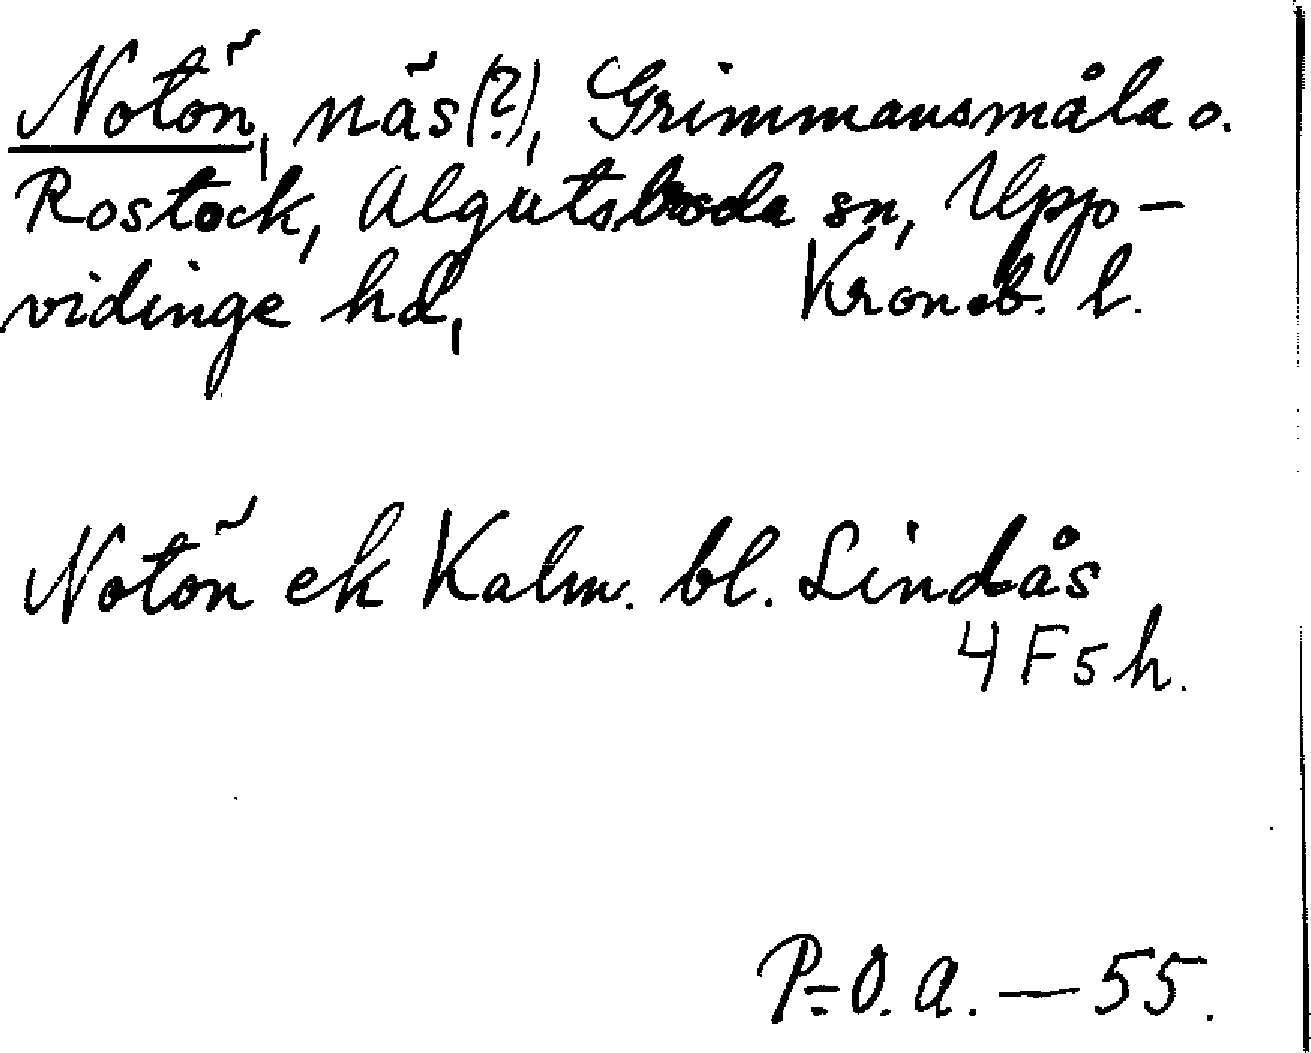 Notön, näs(?), Grimmansmåla o.
Rostock, Algutsboda sn, Upp-
vidinge hd, Kronob. l.
Notön ek Kalm. bl. Lindås
4 F 5 h.
P-O. A. — 55.